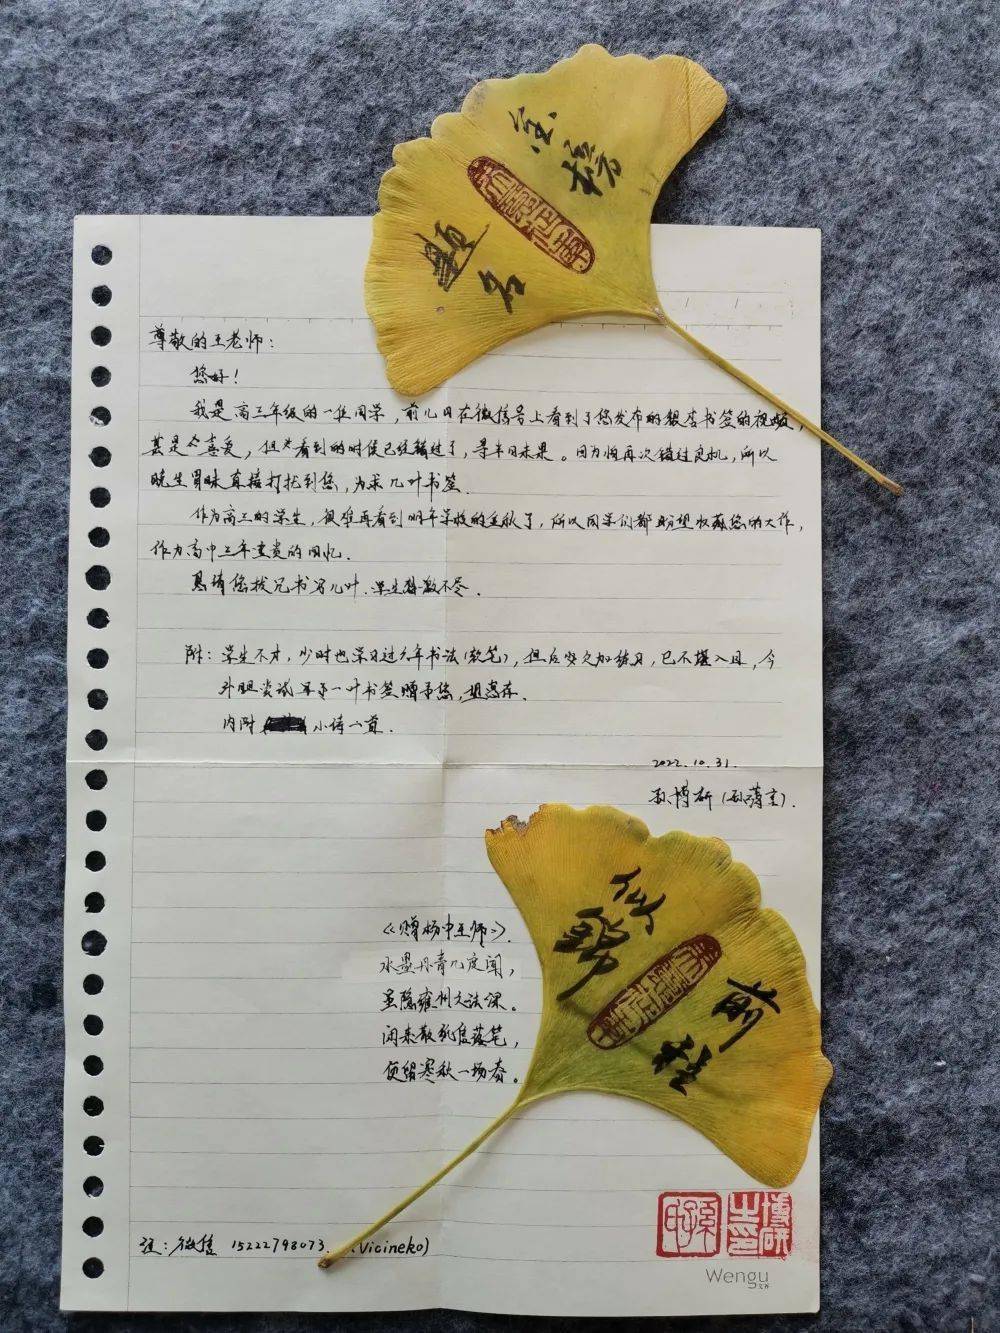 金榜
题名
尊敬的王老师：
您好！
我是高三年级的一位同学，前几日在微信号上看到了您发布的银杏书签的视频，
甚是喜爱，但看到的时候已经错过了，寻半日未果。因为怕再次错过良机，所以
晚生冒昧直接打扰到您，为求几叶书签.
作为高三的学生，很难再看到明年学校的金秋了，所以同学们都盼望收藏您的大作，
作为高中三年宝贵的回忆.
恳请您拨冗书写几叶.学生感激不尽.
附：学生不才，少时也学习过六年书法(软笔)，但后安欠加练习，已不堪入目，今
斗胆尝试写了一叶书签赠予您，望惠存.
内附 小诗一首.
2022.10.31.
孙博研
《赠杨中王师》.
水墨丹青几度闻，
虽隐雍州文法深。
闲来散死信落笔，
便留寒秋一场春。
似锦
前程
注：微信 15222798073. (Vicineko)
博研
Wengu